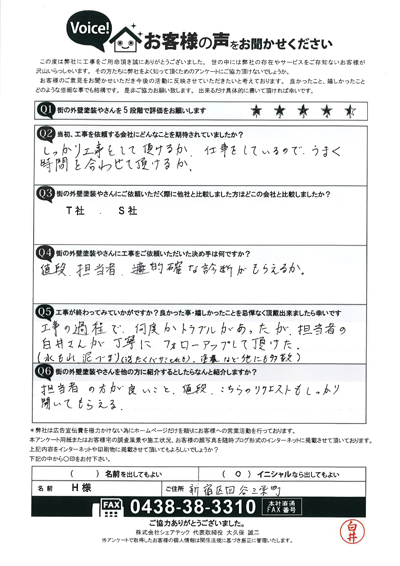 Voice!
お客様の声をお聞かせください
この度は弊社に工事をご用命頂き誠にありがとうございました。世の中には弊社の存在やサービスをご存知ないお客様が
沢山いらっしゃいます。その方たちに弊社をよく知って頂くためのアンケートにご協力頂けないでしょうか。
お客様のご意見をお聞かせいただき今後の活動に反映させていただきたいと考えております。良かったこと、嬉しかったこと
どのような些細な事でも結構です。是非ご協力お願い致します。出来るだけ具体的に書いて頂ければ幸いです。
Q1 街の外壁塗装やさんを5段階で評価をお願いします ★ ★ ★ ★ ★
Q2 当初、工事を依頼する会社にどんなことを期待されていましたか?
しっかり工事をして頂けるか、仕事をしているので、うまく
時間を合わせて頂けるか。
Q3 街の外壁塗装やさんにご依頼いただく際に他社と比較しました方はどこの会社と比較しましたか?
T社、S社
Q4 街の外壁塗装やさんに工事をご依頼いただいた決め手は何ですか?
値段、担当者、適的確な診断がもらえるか。
Q5 工事が終わってみていかがですか?良かった事・嬉しかったことを忌憚なく頂戴出来ましたら幸いです
工事の過程で、何度かトラブルがあったが、担当者の
臼井さんが丁寧にフォローアップして頂けた。
Q6 街の外壁塗装やさんを他の方に紹介するとしたらなんと紹介しますか?
担当者の方が良いこと、値段、こちらのリクエストもしっかり
聞いてもらえる。
*弊社は広告宣伝費を極力かけない為にホームページだけを頼りにお客様への営業活動を行っております。
本アンケート用紙またはお客様宅の調査風景や施工状況、お客様の顔写真を随時ブログ形式のインターネットに掲載させて頂いております。
上記内容をインターネットや印刷物に掲載させて頂いてもよろしいでしょうか?
下記の中から〇印をお付下さい。
( )名前を出してもよい ( 〇 )イニシャルなら出してもよい
名前 H様 ご住所 新宿区四谷三栄町
FAX 0438-38-3310 本社直通 FAX番号
ご協力ありがとうございました。
株式会社シェアテック 代表取締役 大久保 誠二
※アンケートで取得したお客様の個人情報は関係法規に基づき厳正に管理いたします。
臼井